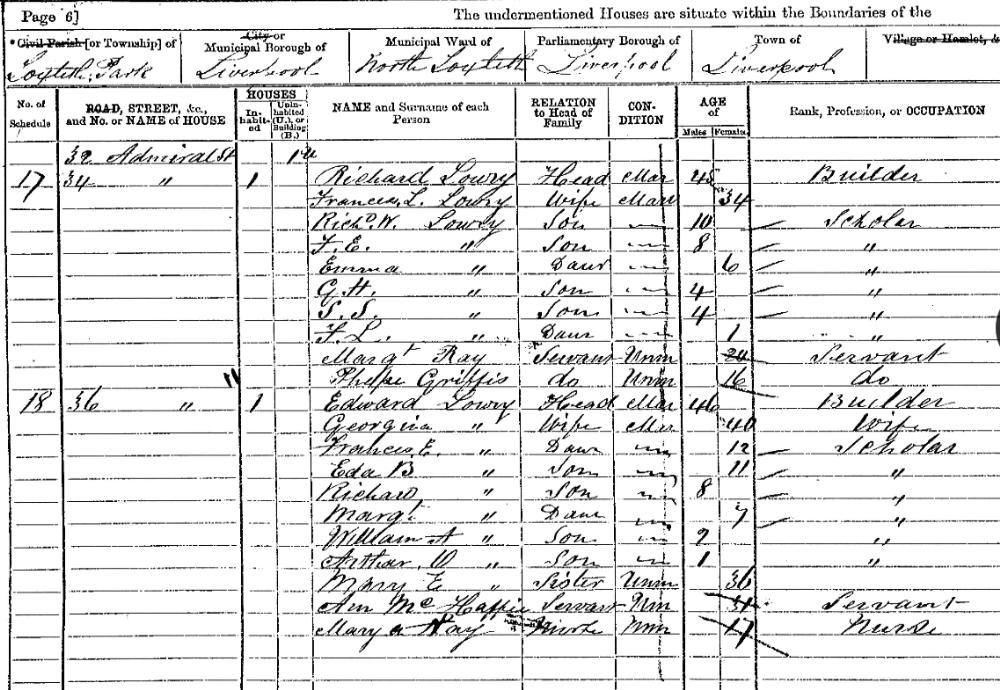 Page 6] The undermentioned Houses are situate within the Boundaries of the
Civil Parish [or Township] of City or Municipal Borough of Municipal Ward of Parliamentary Borough of Town of Village or Hamlet, &
Toxteth Park Liverpool North Toxteth Liverpool Liverpool
No. of Schedule ROAD, STREET, &c., and No. or NAME of HOUSE HOUSES Inhabited Uninhabited (U.), or Building (B.) NAME and Surname of each Person RELATION to Head of Family CONDITION AGE of Males Females Rank, Profession, or OCCUPATION
32 Admiral St 1 u
17 34 " 1 Richard Lowry Head Mar 45 Builder
Frances L. Lowry Wife Marr 34
Richd W. Lowry Son — 10 Scholar
F. E. " Son — 8 "
Emma " Daur — 6 "
G. H. " Son — 4 "
S. S. " Son — 4 "
F. L. " Daur — 1 "
Margt Ray Servant Unm 24 Servant
Phebe Griffis do Unm 16 do
18 36 " 1 Edward Lowry Head Mar 46 Builder
Georgina " Wife Mar 40 Wife
Frances E. " Daur — 12 Scholar
Eda B " Son — 11 "
Richard " Son — 8 "
Margt " Daur — 7 "
William A " Son — 2 "
Arthur O " Son — 1 "
Mary E " Sister Unm 36
Ann Mc Haffie Servant Unm 31 Servant
Mary a Hay Unm 17 Nurse